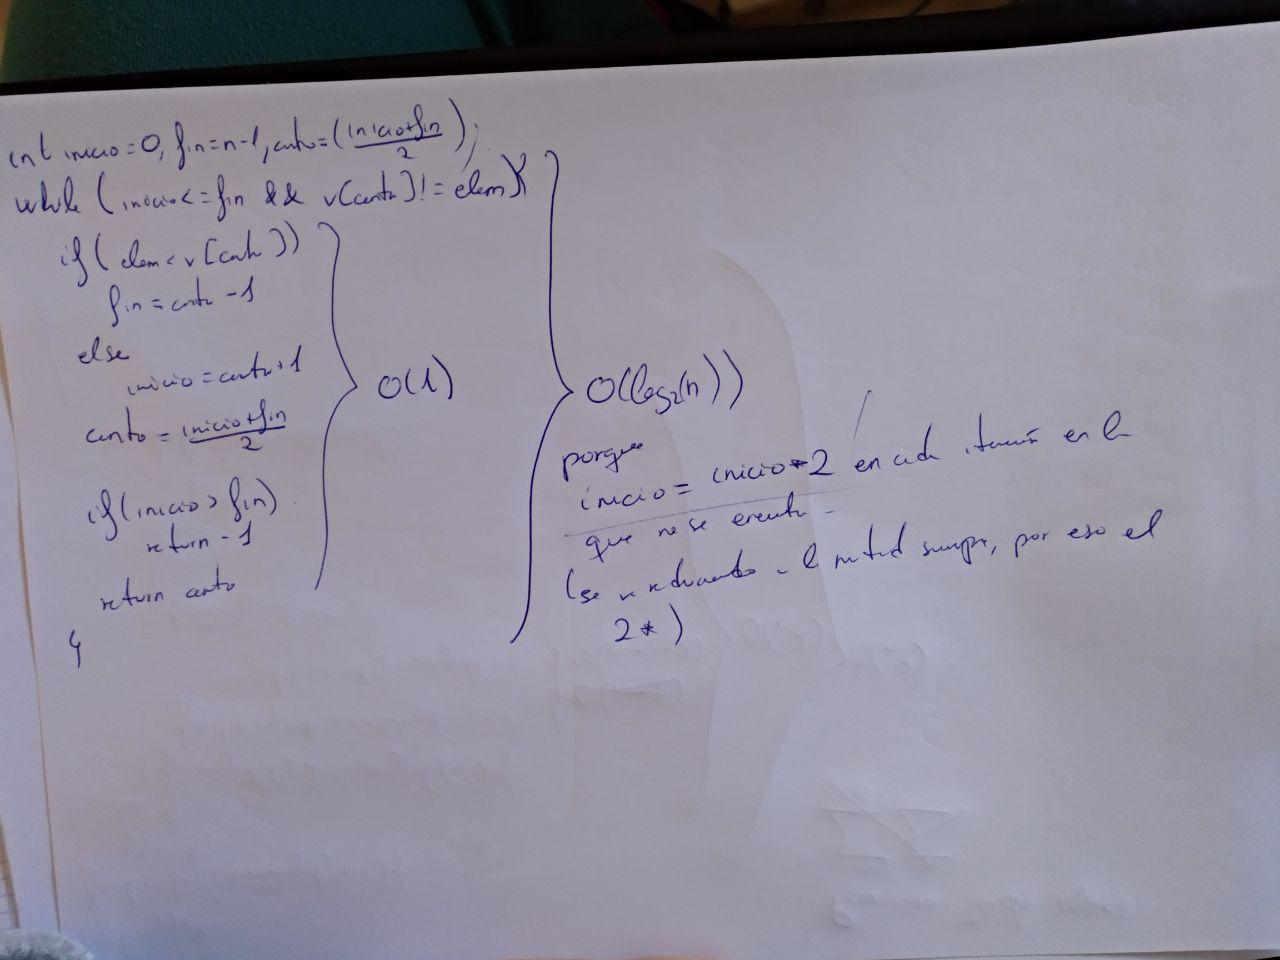 int inicio=0, fin=n-1, cnto=(inicio+fin/2);
while (inicio<=fin && v[centro]!=elem){
if(elem<v[cento])
fin=cento-1
else
inicio=cento+1
cento=inicio+fin/2
if(inicio>fin)
return-1
return cento
}
O(1)
O(log2(n))
porque
inicio=inicio*2 en cada iteración en la
que no se encuentra
(se va reduciendo a la mitad siempre, por eso el
2*)